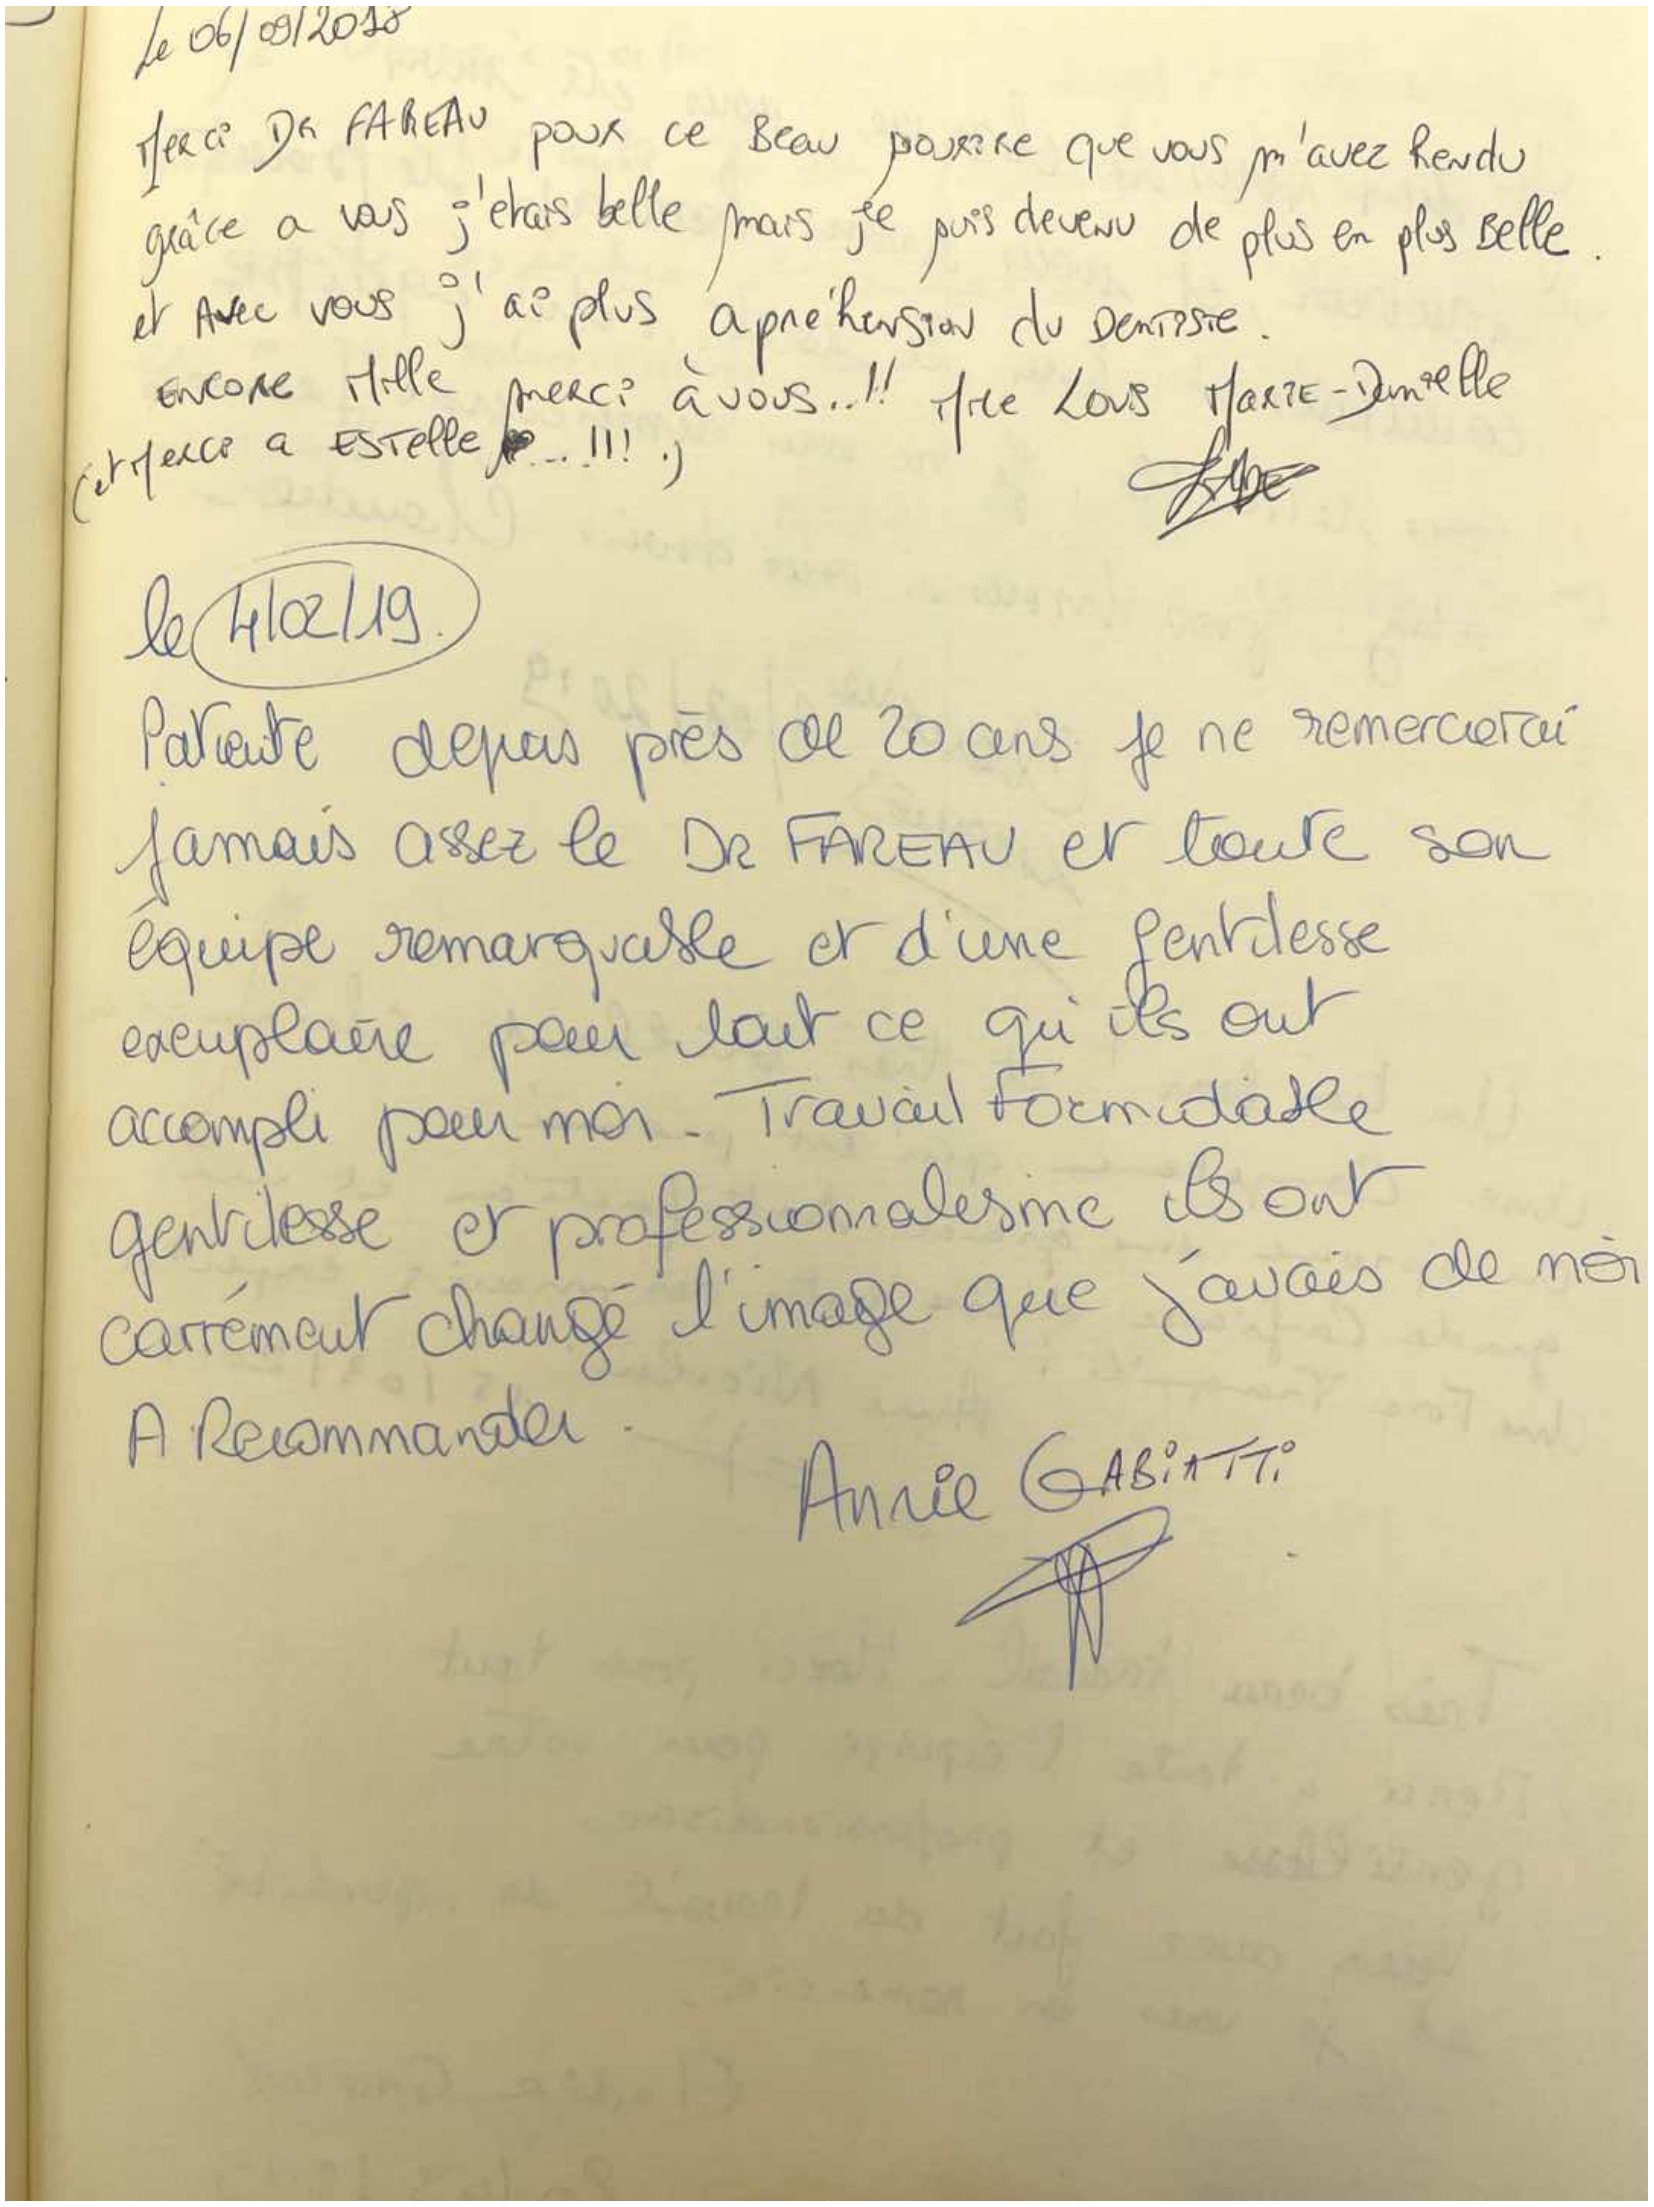 Le 06/09/2018
Merci DR FAREAU pour ce Beau sourire que vous m'avez Rendu
grâce a vous j'etais belle mais je suis devenu de plus en plus Belle.
et Avec vous j'ai plus apréhension du Dentiste.
ENCORE Mille merci à vous..!! Mlle LOUS MARIE-Danielle
(et Merci a ESTelle ... !!! .)
le 4/02/19.
Patiente depuis près de 20 ans je ne remercierai
jamais assez le DR FAREAU et toute son
équipe remarquable et d'une gentilesse
exemplaire pour tout ce qu'ils ont
accompli pour moi. Travail Formidable
gentilesse et professionnalisme ils ont
carrément changé l'image que j'avais de moi
A Recommander.
Annie GABIATTI